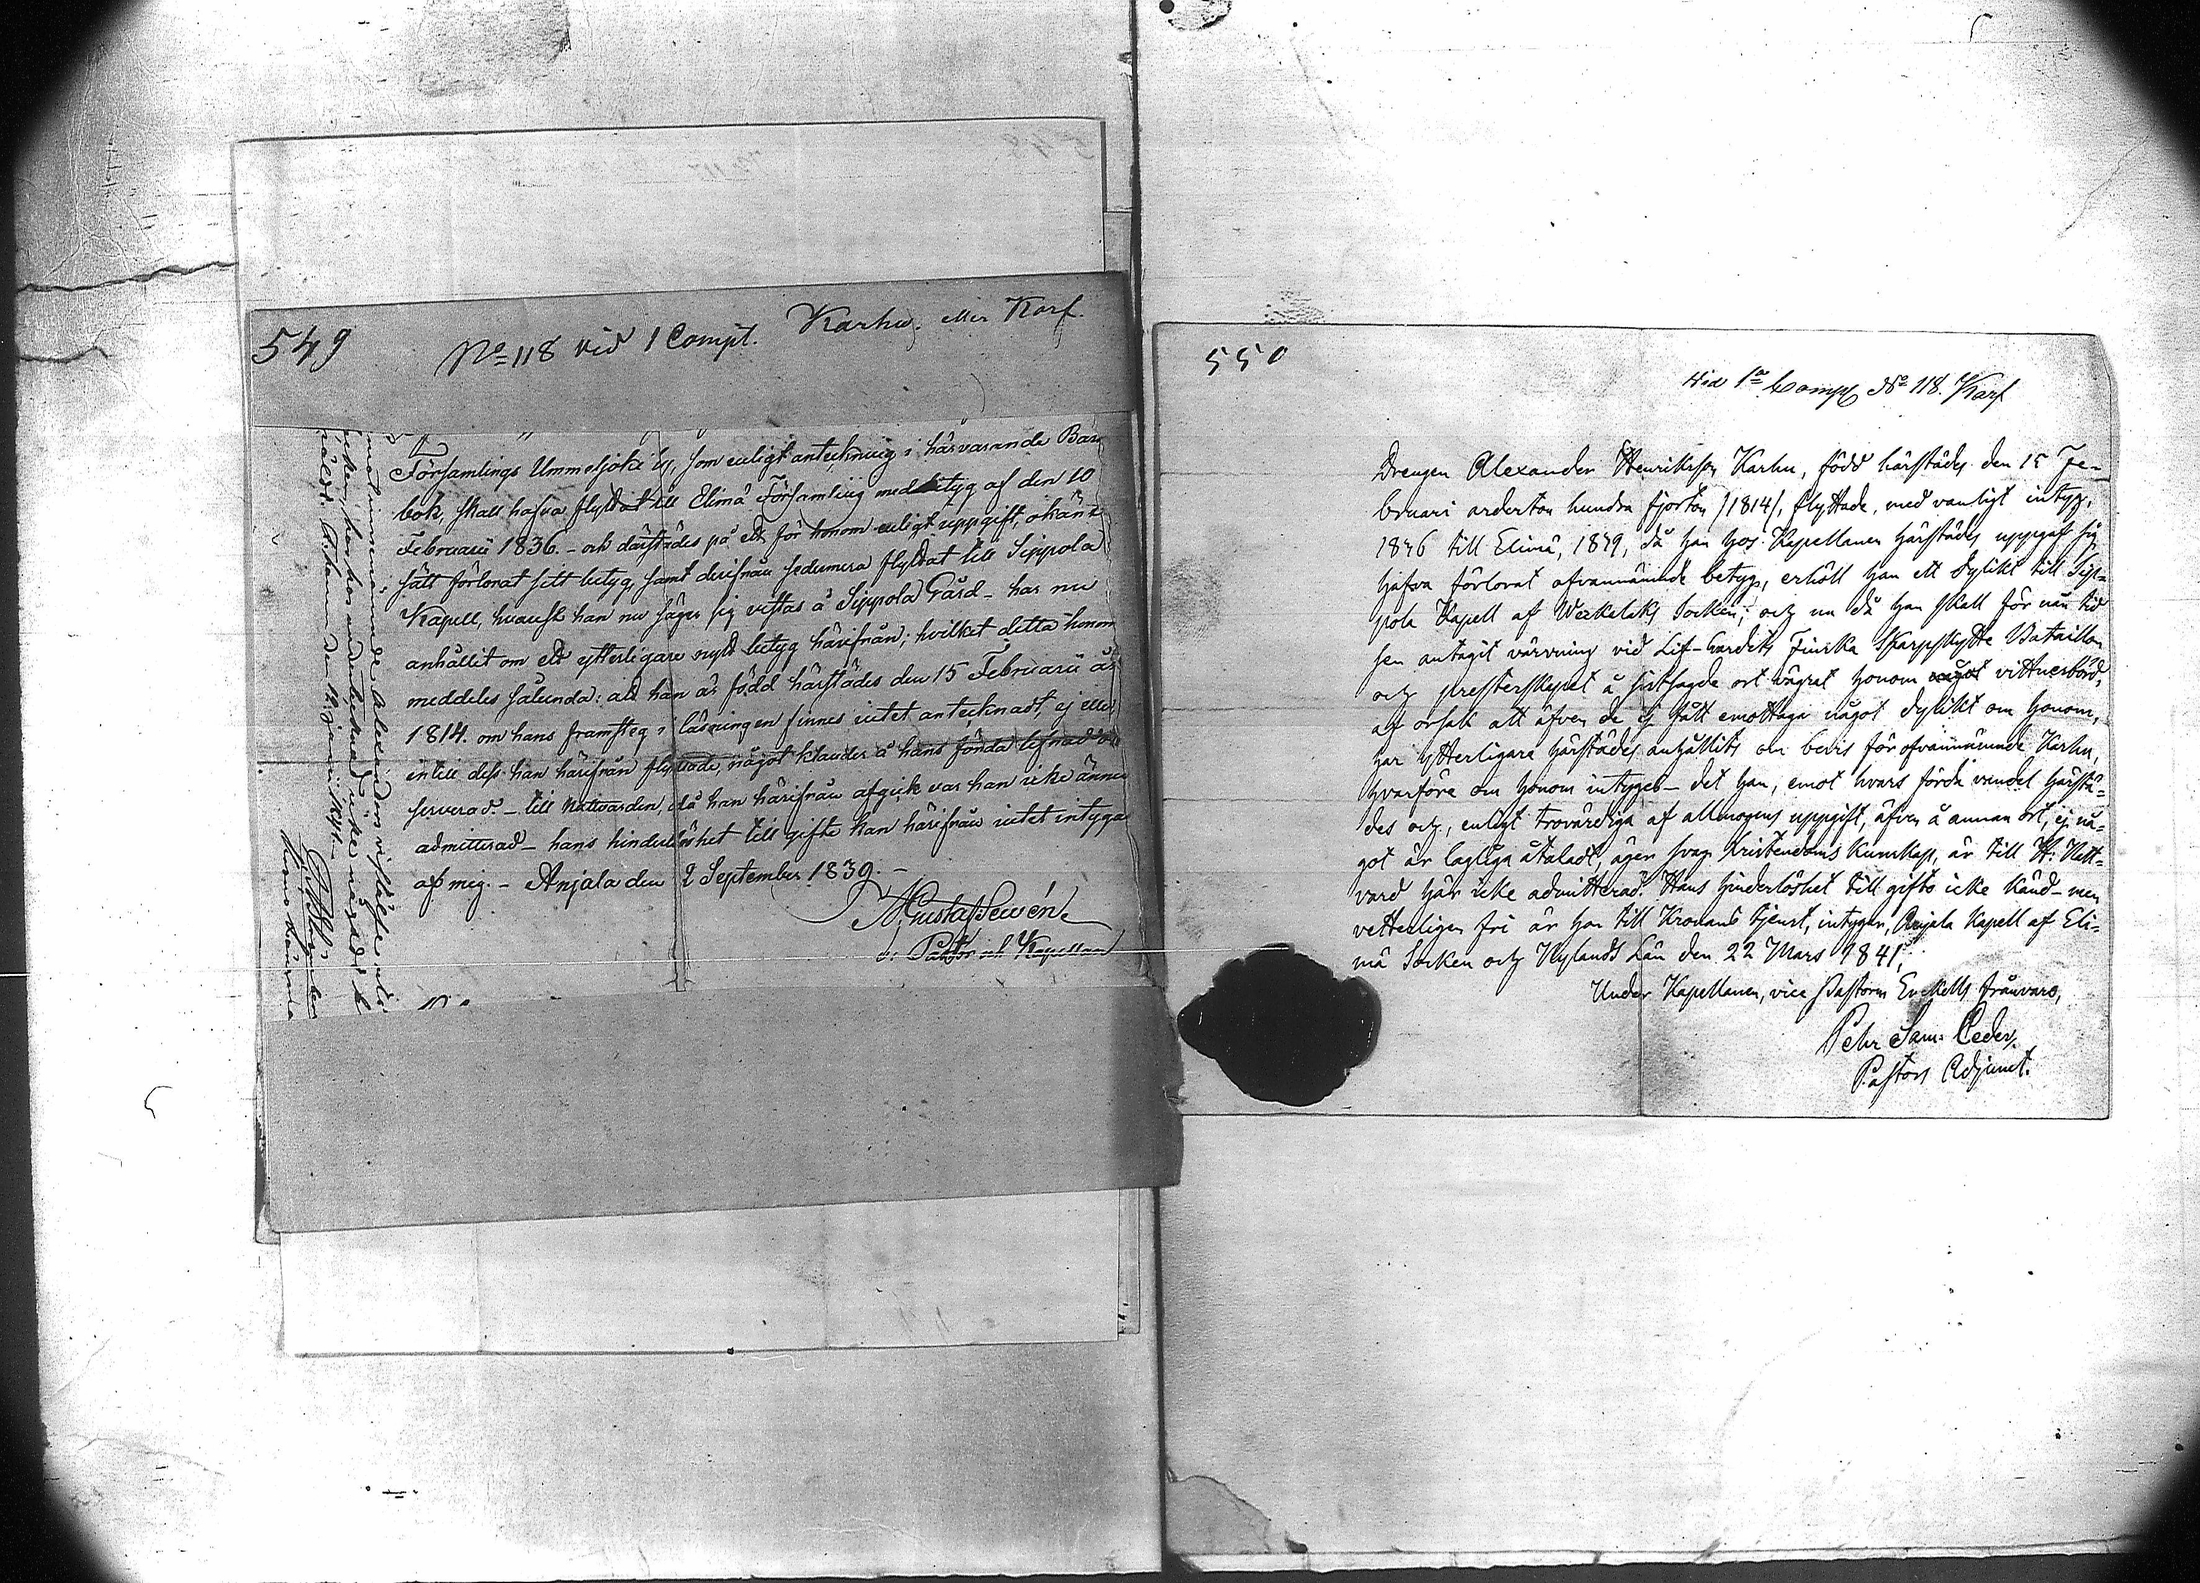 549
No 118 vid 1 Compt. Karhu. eller Karf.
Församlings Ummeljoki by, som enligt anteckning i härvarande Barn
bok, skall hafva flyttat till Elimä Församling med betyg af den 10
Februarii 1836. - och därstädes på ett för honom enligt uppgift, okänt
sätt förlorat sitt betyg, samt derifrån sedermera flyttat till Sippola
Kapell, hvarest han nu säger sig vistas å Sippola Gård - har nu
anhållit om ett ytterligare nytt betyg härifrån; hvilket detta honom
meddeles sålunda: att han är född härstädes den 15 Februarii år
1814. om hans framsteg i läsningen finnes intet antecknadt, ej eller
intill dess han härifrån flyttade, något klander å hans förda lefnad ob
serverad. - till nattvarden, då han härifrån afgick var han icke ännu
admitterad - hans hinderlöshet till gifte kan härifrån intet intygas
af mig. - Anjala den 2 September 1839. -
Gustaf
v. Pastor och Kapellan
Alexanders vistelse
den 18 januari 1841.
550
Vid 1a Comp No 118. Karf
Drengen Alexander Henriksson Karhu, född härstädes den 15 Fe-
bruari aderton hundra fjorton /1814/, flyttade, med vanligt intyg,
1836 till Elimä, 1839, då han hos Kapellanen härstädes uppgaf sig
hafva förlorat ofvannämnde betyg, erhöll han ett dylikt till Sip-
pola Kapell af Weckelaks Socken; och nu då han skall för nån tid
sen antagit värvning vid Lif-Gardets Finska Skarpskytte Bataillon
och presterskapet å sistsagde ort vägrat honom något vittnesbörd,
af orsak att äfven de ej fått emottaga något dylikt om honom,
har ytterligare härstädes anhållits om bevis för ofvannämnde Karhu,
hvarföre om honom intygas - det han, emot hvars förda vandel härstä-
des och, enligt trovärdiga af allmogens uppgift, äfven å annan ort, ej nå-
got är lagliga åtaladt, äger svag Kristendoms Kunskap, är till H: Natt-
vard här icke admitterad. Hans hinderlöshet till gifte icke känd - men
vetterligen fri är han till Kronans tjenst, intygar, Anjala Kapell af Eli-
mä Socken och Nylands Län den 22 Mars 1841,
Under Kapellanen, vice Pastorn Enckells frånvaro,
Pehr Sam: Ceder.
Pastors Adjunct.